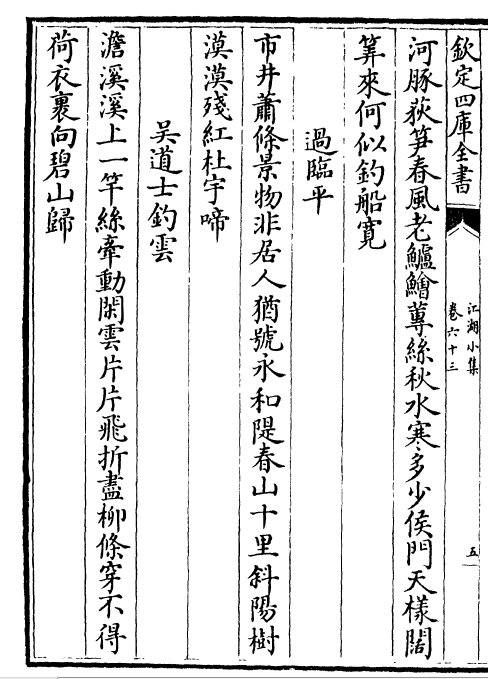 欽定四庫全書
江湖小集
卷六十三
五
河豚荻笋春風老鱸鱠蓴絲秋水寒多少侯門天樣闊
筭來何似釣船寛
過臨平
市井蕭條景物非居人猶號永和隄春山十里斜陽樹
漠漠殘紅杜宇啼
吴道士釣雲
澹溪溪上一竿絲牽動閑雲片片飛折盡柳條穿不得
荷衣裹向碧山歸